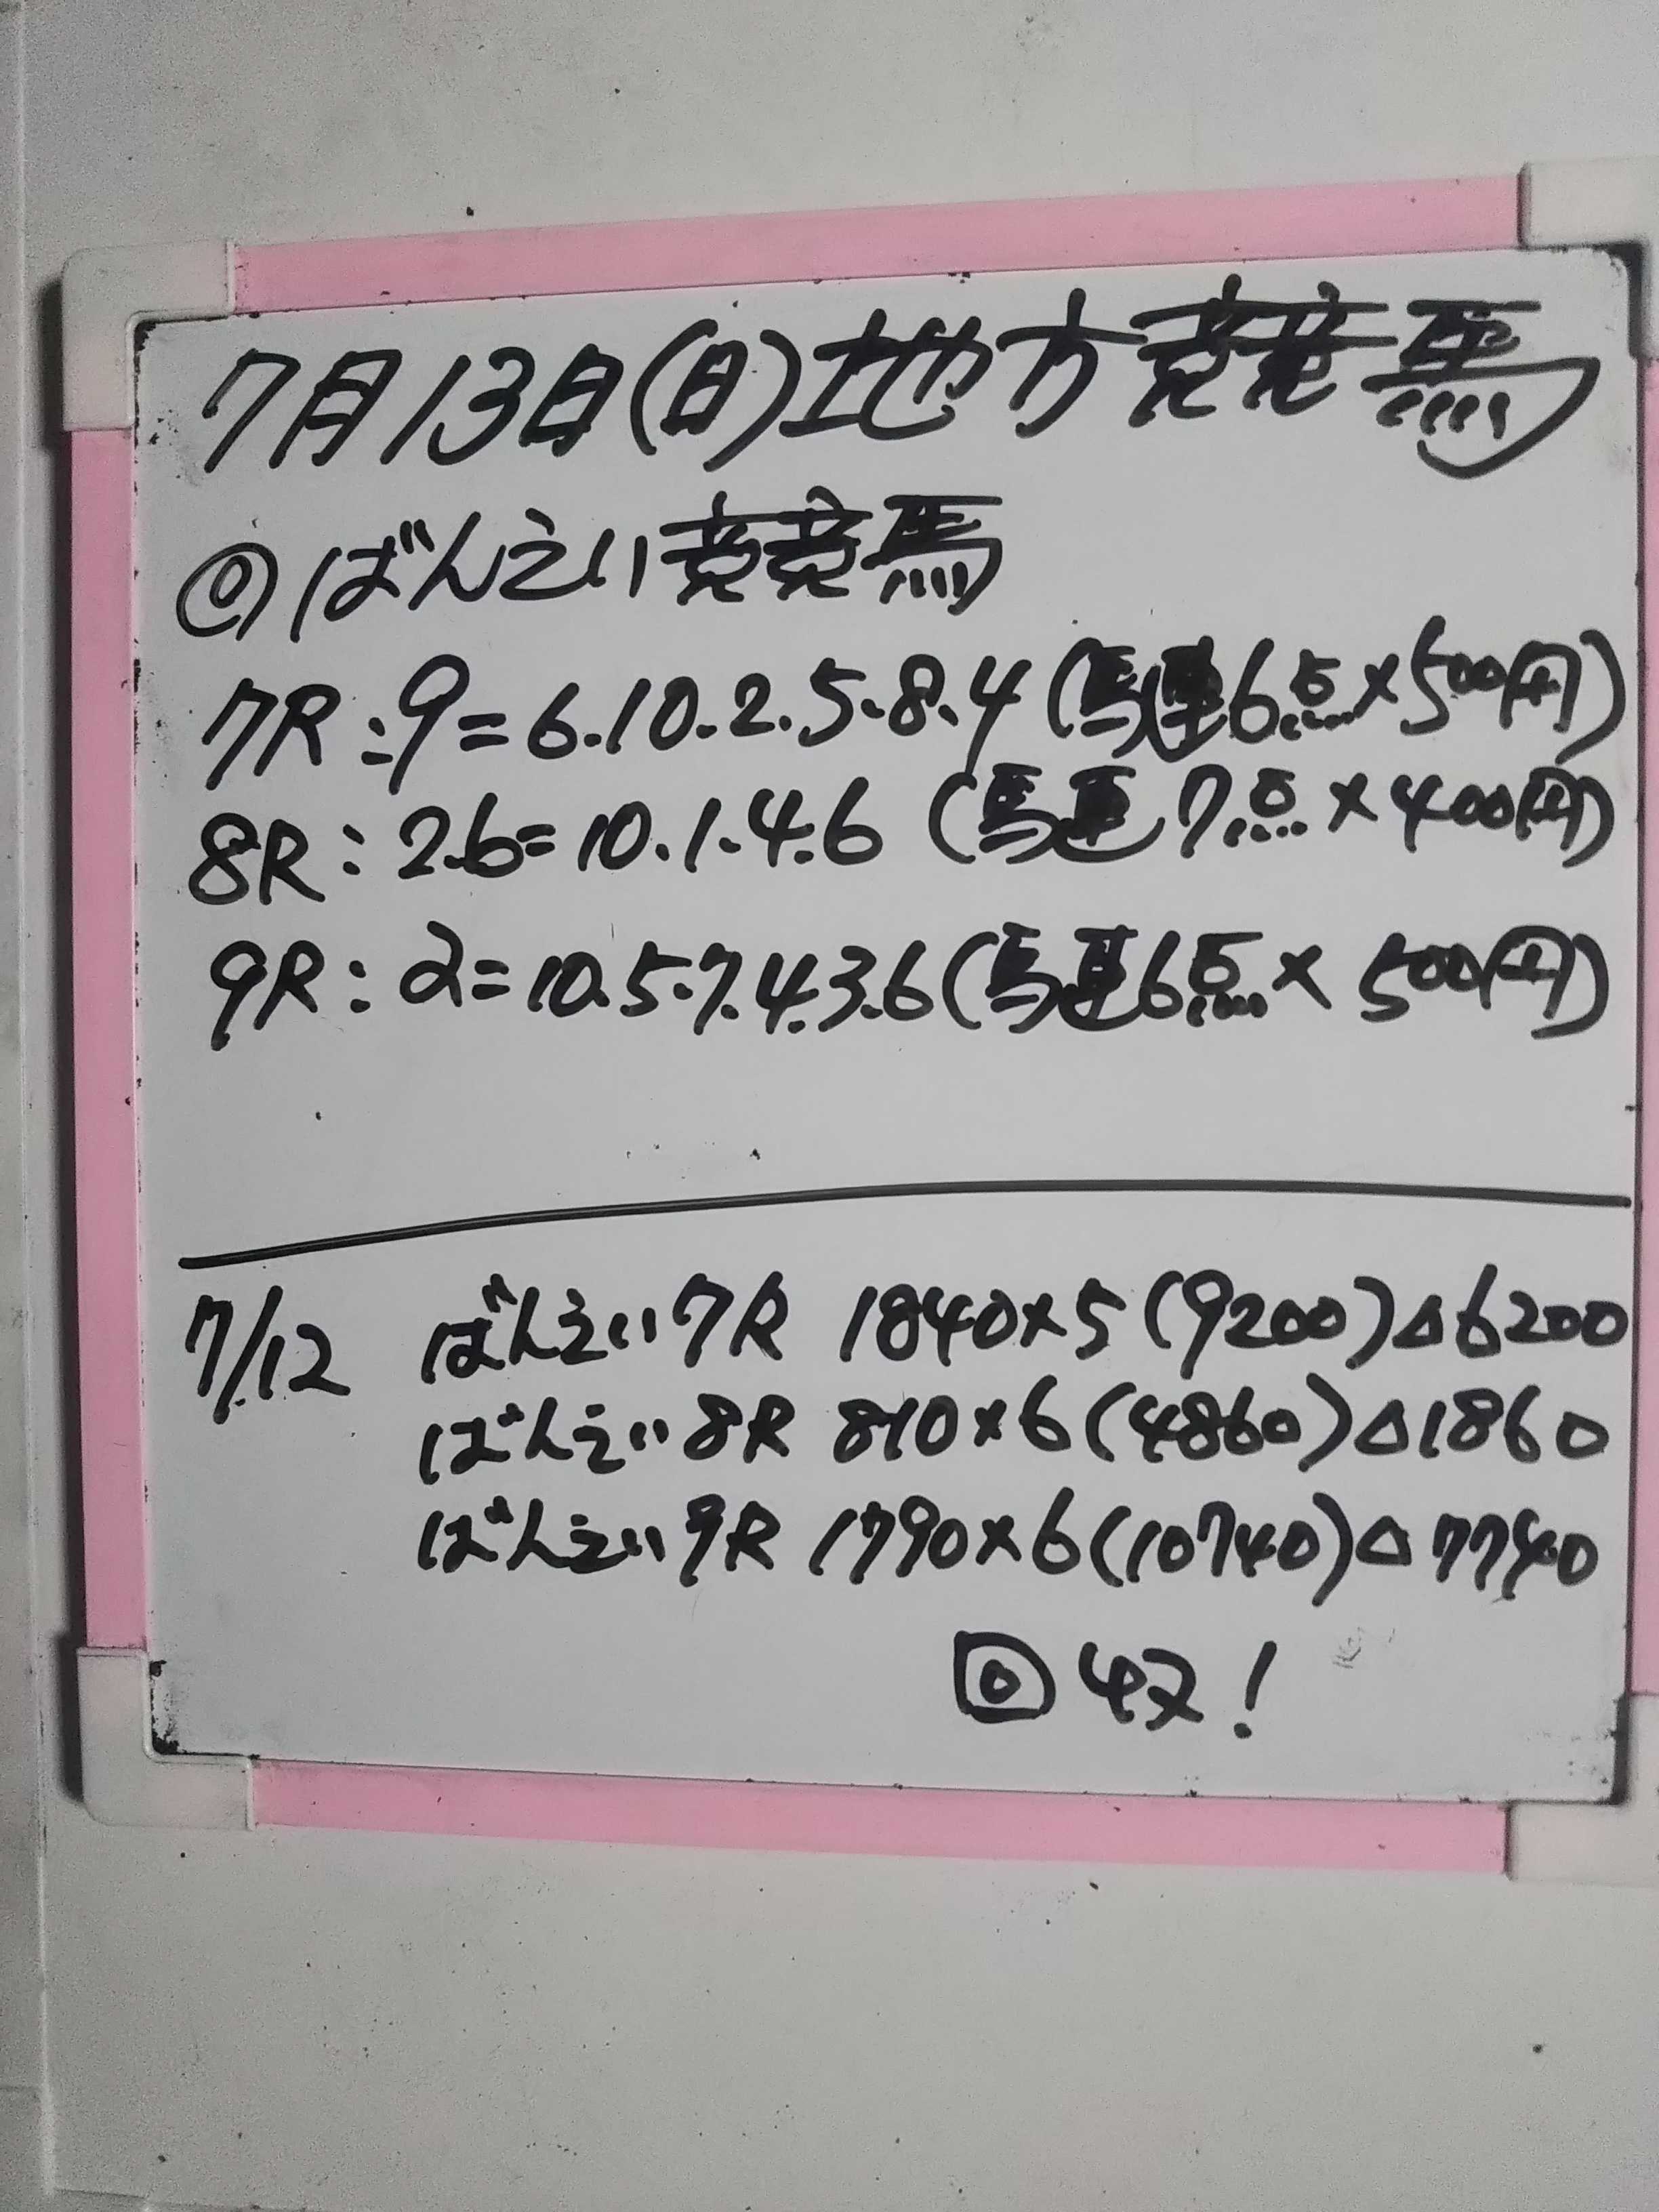 7月13日(日)地方競馬
◎ばんえい競馬
7R:9=6.10.2.5.8.4(馬連6点×500円)
8R:2.6=10.1.4.6(馬連7点×400円)
9R:2=10.5.7.4.3.6(馬連6点×500円)
7/12 ばんえい7R 1840×5(9200)△6200
ばんえい8R 810×6(4860)△1860
ばんえい9R 1790×6(10740)△7740
回収!